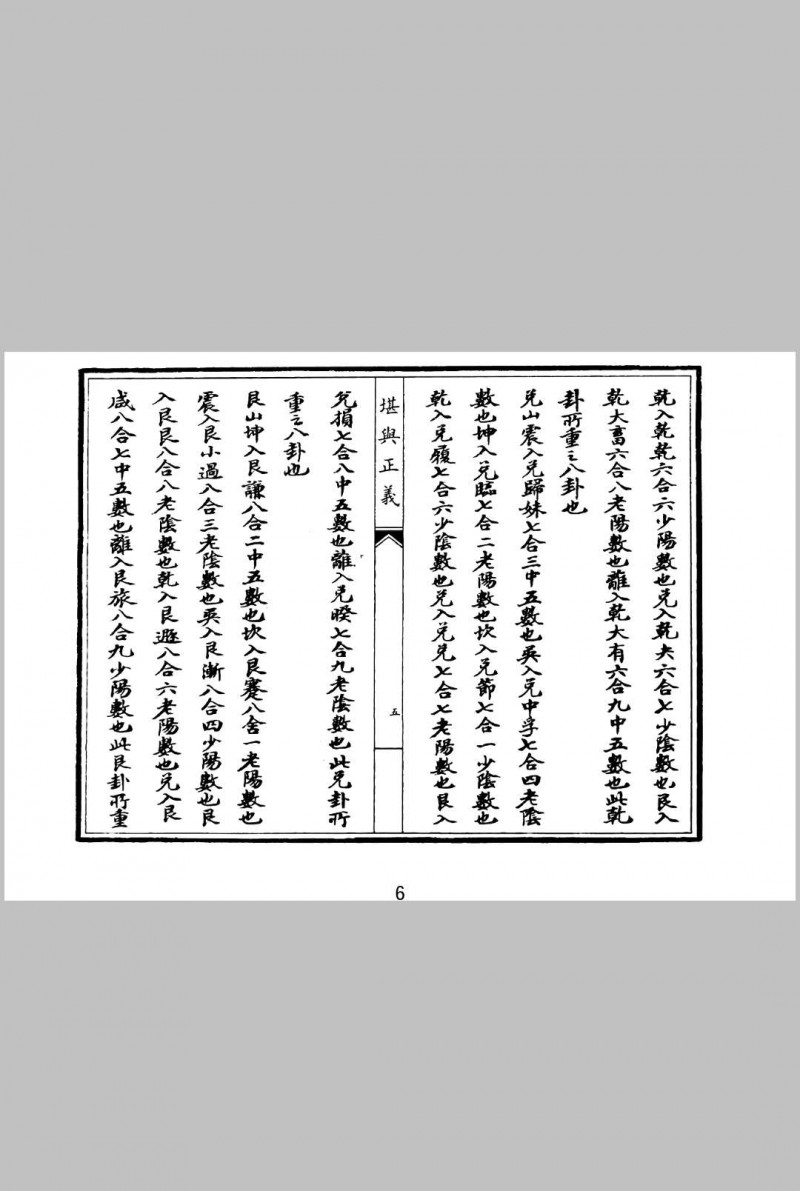 乾入乾乾六合六少陽數也兑入乾夬六合七少陰數也艮入
乾大畜六合八老陽數也離入乾大有六合九中五數也此乾
卦所重之八卦也
兑山震入兑歸妹七合三中五數也巽入兑中孚七合四老陰
數也坤入兑臨七合二老陽數也坎入兑節七合一少陰數也
乾入兑履七合六少陰數也兑入兑兑七合七老陽數也艮入
堪輿正義
五
兑損七合八中五數也離入兑睽七合九老陰數也此兑卦所
重之八卦也
艮山坤入艮謙八合二中五數也坎入艮蹇八舍一老陽數也
震入艮小過八合三老陰數也巽入艮漸八合四少陽數也艮
入艮艮八合八老陰數也乾入艮遯八合六老陽數也兑入艮
咸八合七中五數也離入艮旅八合九少陽數也此艮卦所重
6